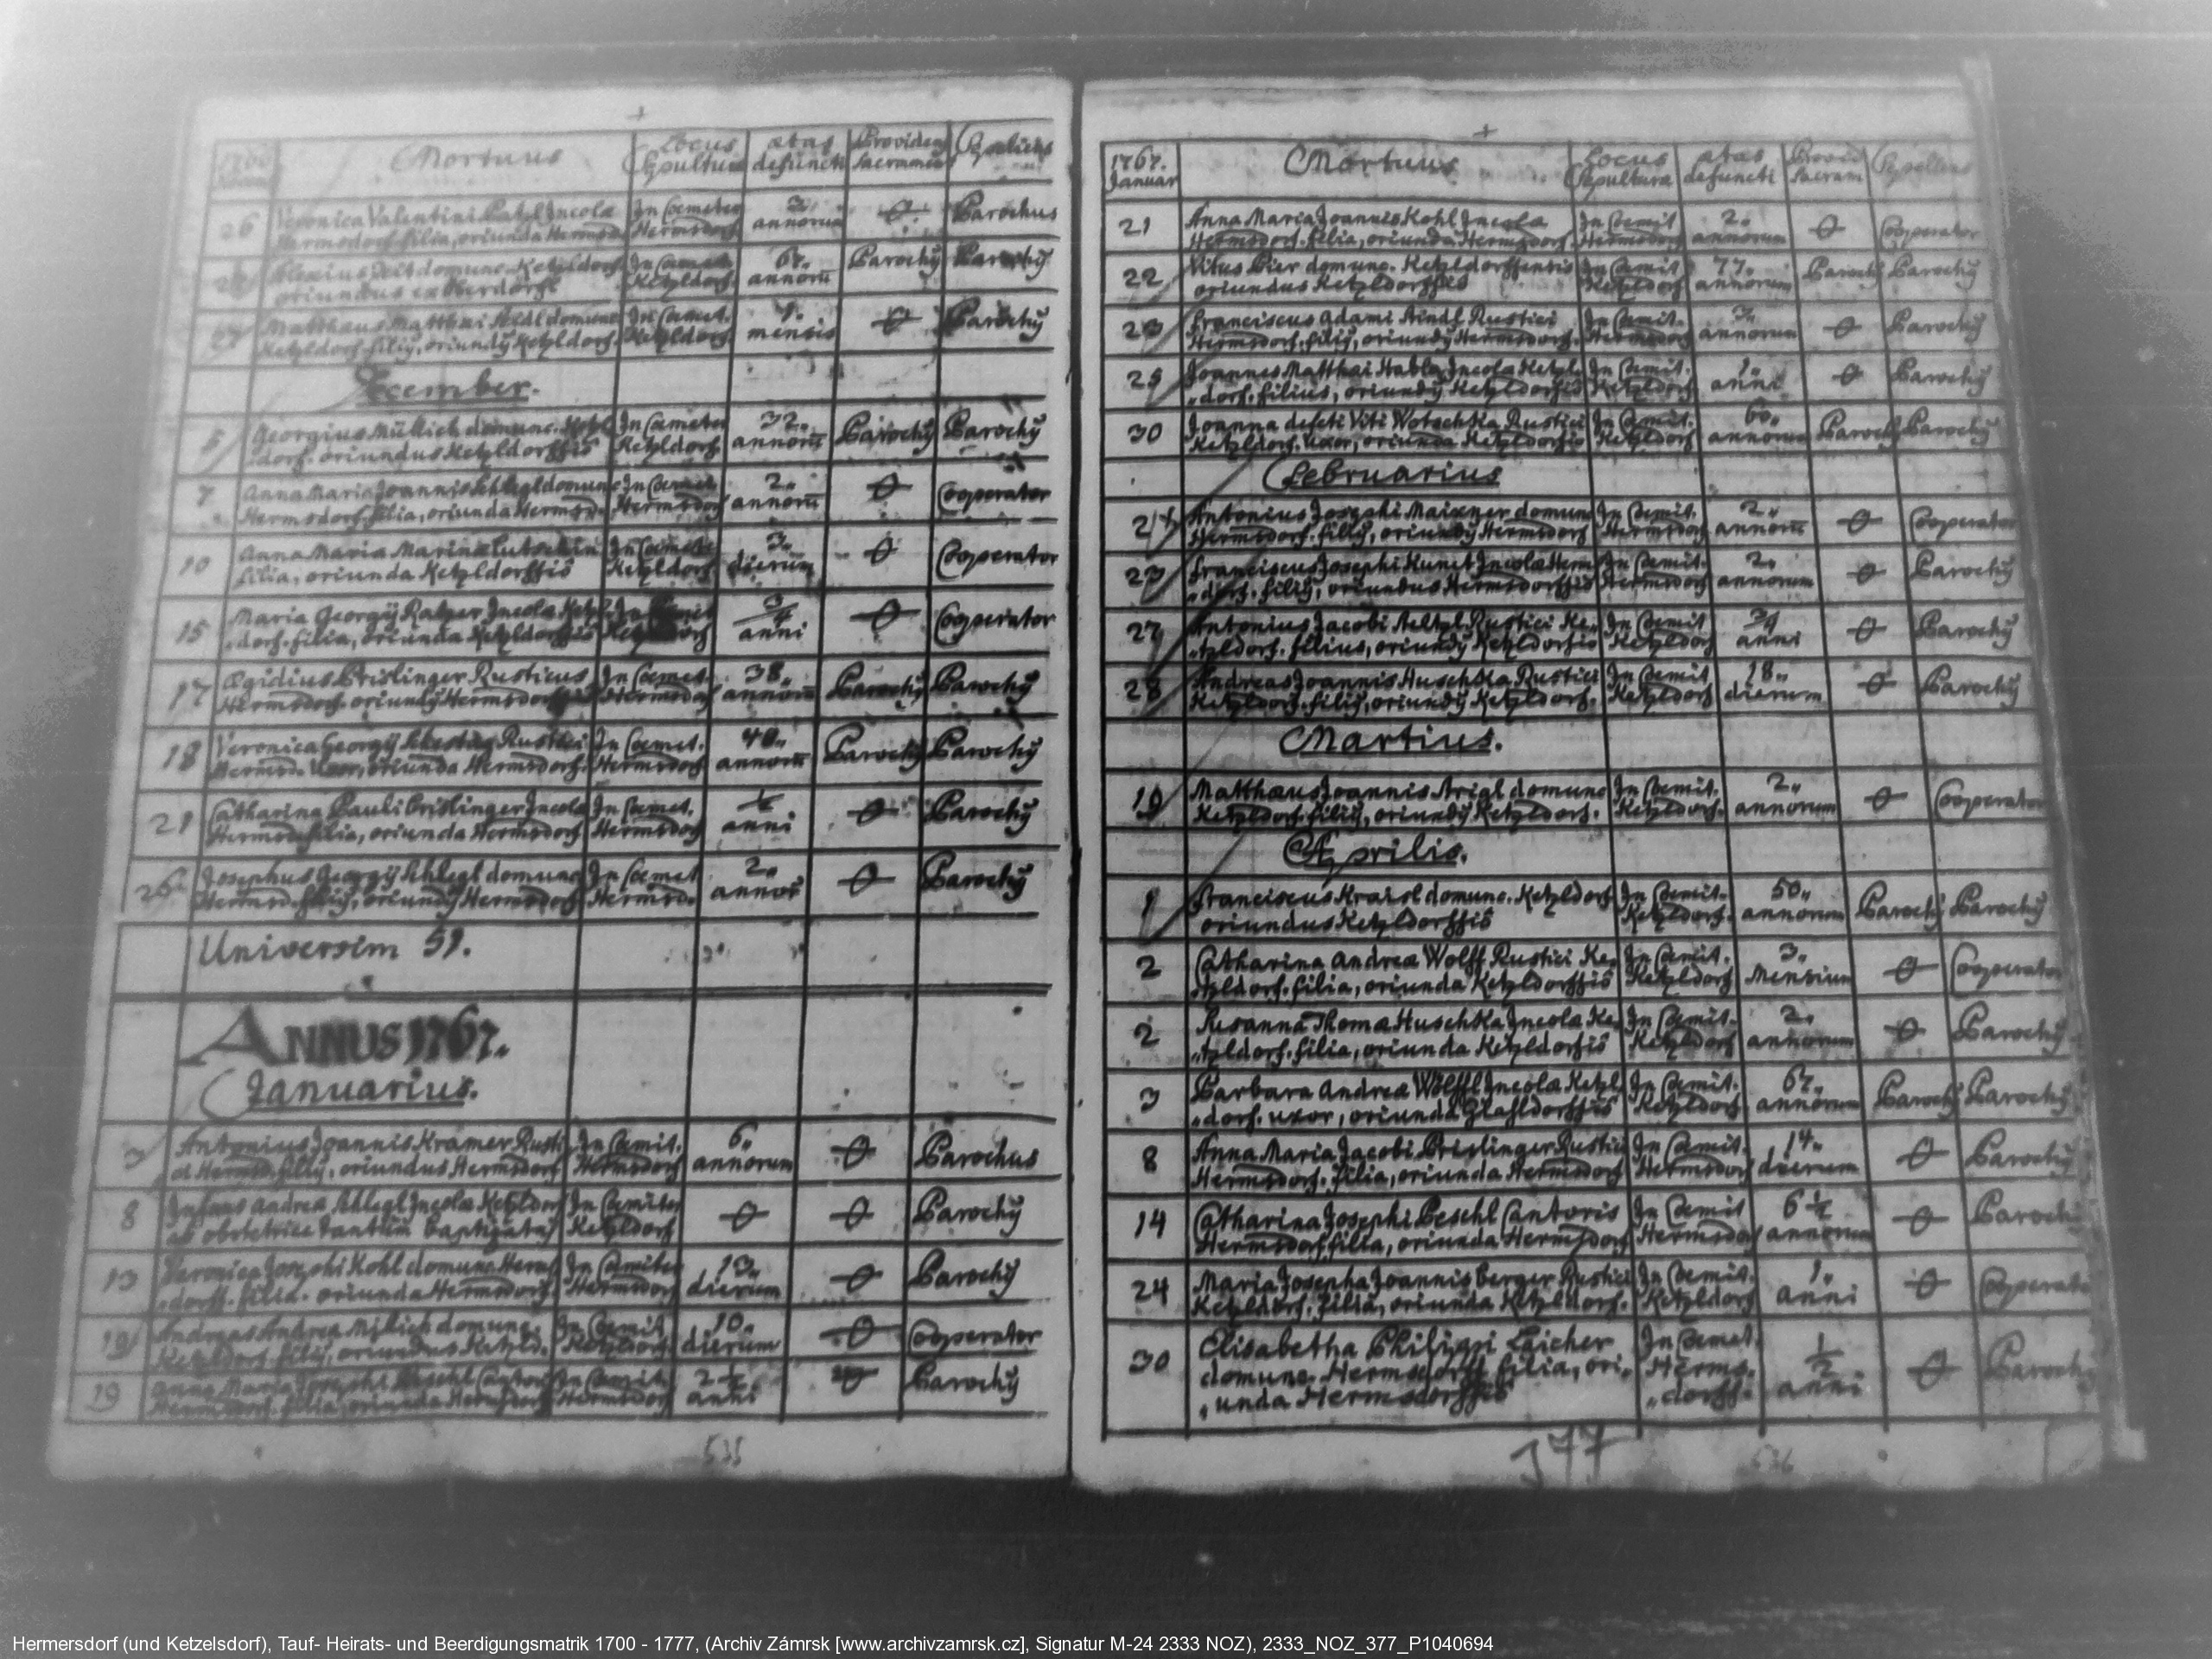 Mortuus
Locus
Sepulturæ
ætas
defuncti
26
Veronica Valentini Incolæ
Hermsdorf. filia, oriunda Hermsd.
In Cœmeter
Hermsdorf
annorum
Parochus
domunc. Ketzldorf
oriundus ex Oberdorf
Ketzldorf
annorū
Parochÿ
Parochÿ
Matthæus Matthæi domunc
Ketzldorf. filiÿ, oriundÿ Ketzldorf.
In Cœmet.
Ketzldorf.
mensis
Parochÿ
December.
5
Georgius Müllich domunc. Ketzl
dorf. oriundus Ketzldorffīs
In Cœmeter
Ketzldorf
32„
annorū
Parochÿ
Parochÿ
7
Anna Maria Joannis Schlegl domunc
Hermsdorf. filia, oriunda Hermsd.
In Cœmet.
Hermsdorf
2„
annorū
Cooperator
10
Anna Maria Marinæ
filia, oriunda Ketzldorffīs
In Cœmet.
Ketzldorf
3„
dierum
Cooperator
15
Maria Georgÿ Incolæ Ketzl
„dorf. filia, oriunda Ketzldorffīs
3/4
anni
Cooperator
17
Ægidius Brislinger Rusticus
Hermsdorf. oriundÿ Hermsdorf
In Cœmet.
Hermsdorf
38„
annorū
Parochÿ
Parochÿ
18
Veronica Georgÿ Rustici
Hermsd. Uxor, oriunda Hermsdorf.
In Cœmet.
Hermsdorf
40„
annorū
Parochÿ
Parochÿ
21
Catharina Pauli Brislinger Incolæ
Hermsd. filia, oriunda Hermsdorf
In Cœmet.
Hermsdorf
1/2
anni
Parochÿ
26
Josephus Georgÿ Schlegl domunc
Hermsd. filiÿ, oriundÿ Hermsdorf
In Cœmet
Hermsd.
2„
annor̄
Parochÿ
Universim 59.
ANNUS 1767.
Januarius.
3
Antonius Joannis Kramer Rusti
ci Hermsd. filiÿ, oriundus Hermsdorf
In Cœmit.
Hermsdorf
6„
annorum
Parochus
8
Infans Andreæ Schlegl Incolæ Ketzldorf
ab obstetrice tantūm baptizatÿ
In Cœmiter
Ketzldorf
Parochÿ
13
Veronica Josephi Kohl domunc. Herms
„dorff. filia. oriunda Hermsdorf.
In Cœmiter
Hermsdorf
13„
dierum
Parochÿ
19
Andreas Andreæ domunc.
Ketzldorf. filiÿ, oriundus Ketzld.
In Cœmit
Ketzldorf
10„
dierum
Cooperator
19
Anna Maria Josephi Peschl Cantor
Hermsdorf. filia, oriunda Hermsdorf
In Cœmit.
Hermsdorf
2 1/2
anni
Parochÿ
535
1767.
Januar
Mortuus
Locus
Sepulturæ
ætas
defuncti
Provid
Sacram
Sepeliens
21
Anna Maria Joannis Kohl Incolæ
Hermsdorf. filia, oriunda Hermsdorf.
In Cœmit
Hermsdorf
2„
annorum
Cooperator
22
Vitus Bier domunc. Ketzldorffensis
oriundus Ketzldorffīs
In Cœmit
Ketzldorf
77„
annorum
Parochÿ
Parochÿ
23
Franciscus Adami Rustici
Hermsdorf. filiÿ, oriundÿ Hermsdorf.
In Cœmit.
Hermsdorf
3„
annorum
Parochÿ
25
Joannes Matthæi Habla Incolæ Ketzl
„dorf. filius, oriundÿ Ketzldorfīs
In Cœmit.
Ketzldorf
1„
anni
Parochÿ
30
Joanna defcti Viti Wotschka Rustici
Ketzldorf. Uxor, oriunda Ketzldorfīs
In Cœmit.
Ketzldorf
60„
annorum
Parochÿ
Parochÿ
Februarius
21
Antonius Josephi Maixner domunc
Hermsdorf. filiÿ, oriundÿ Hermsdorf
In Cœmit.
Hermsdorf
2„
annorū
Cooperator
23
Franciscus Josephi Kunct Incolæ Herm
„dorf. filiÿ, oriundus Hermsdorffīs
In Cœmit.
Hermsdorf
2„
annorum
Parochÿ
27
Antonius Jacobi Rustici Ke„
„tzldorf. filius, oriundÿ Ketzldorfīs
In Cœmit
Ketzldorf
3/4
anni
Parochÿ
28
Andreas Joannis Huschka Rustici
Ketzldorf. filiÿ, oriundÿ Ketzldorf.
In Cœmit
Ketzldorf
18„
dierum
Parochÿ
Martius.
19
Matthæus Joannis Arigl domunc
Ketzldorf. filiÿ, oriundÿ Ketzldorf.
In Cœmit.
Ketzldorf.
2„
annorum
Cooperator
Aprilis.
1
Franciscus Kraisl domunc. Ketzldorf
oriundus Ketzldorffīs
In Cœmit.
Ketzldorf.
50„
annorum
Parochÿ
Parochÿ
2
Catharina Andreæ Wolff Rustici Ke„
„tzldorf. filia, oriunda Ketzldorffīs
In Cœmit.
Ketzldorf
3„
Mensium
Cooperator
2
Susanna Thomæ Huschka Incolæ Ke„
„tzldorf. filia, oriunda Ketzldorfīs
In Cœmit.
Ketzldorf
2„
annorum
Parochÿ
3
Barbara Andreæ Wölffl Incolæ Ketzl
„dorf. uxor, oriunda
In Cœmit.
Ketzldorf
67„
annorum
Parochÿ
Parochÿ
8
Anna Maria Jacobi Brislinger Rustici
Hermsdorf. filia, oriunda Hermsdorf
In Cœmit.
Hermsdorf
14„
dierum
Parochÿ
14
Catharina Josephi Peschl Cantoris
Hermsdorf. filia, oriunda Hermsdorf
In Cœmit
Hermsdorf
6 1/2
annorum
Parochÿ
24
Maria Josepha Joannis Berger Rustici
Ketzldorf. filia, oriunda Ketzldorf.
In Cœmit.
Ketzldorf
1„
anni
Cooperato
30
Elisabetha Philippi Laicher
domunc. Hermsdorff filia, ori„
„unda Hermsdorffīs
In Cœmet.
Herms„
„dorff.
1/2
anni
Parochÿ
377
536
Hermersdorf (und Ketzelsdorf), Tauf- Heirats- und Beerdigungsmatrik 1700 - 1777, (Archiv Zámrsk [www.archivzamrsk.cz], Signatur M-24 2333 NOZ), 2333_NOZ_377_P1040694